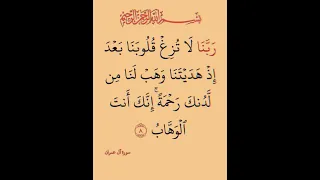 بِسْمِ اللَّهِ الرَّحْمَٰنِ الرَّحِيمِ
رَبَّنَا لَا تُزِغْ قُلُوبَنَا بَعْدَ
إِذْ هَدَيْتَنَا وَهَبْ لَنَا مِن
لَّدُنكَ رَحْمَةً ۚ إِنَّكَ أَنتَ
ٱلْوَهَّابُ ﴿٨﴾
سورة آل عمران